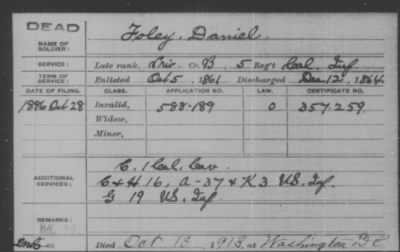 DEAD
NAME OF SOLDIER: Foley, Daniel.
SERVICE: Late rank, Priv. Co. B, 5 Reg't Cal. Inf
TERM OF SERVICE: Enlisted Oct 5, 1861 Discharged Dec 12, 1864
DATE OF FILING. CLASS. APPLICATION NO. LAW. CERTIFICATE NO.
1886 Oct 28 Invalid, 588-189 O 357.259
Widow,
Minor,
C. 1 Cal. Cav.
ADDITIONAL SERVICES: C & H 16, A-37 & K 3 U.S. Inf.
G 19 U.S. Inf.
REMARKS:
Died Oct 13, 1913, at Washington D C